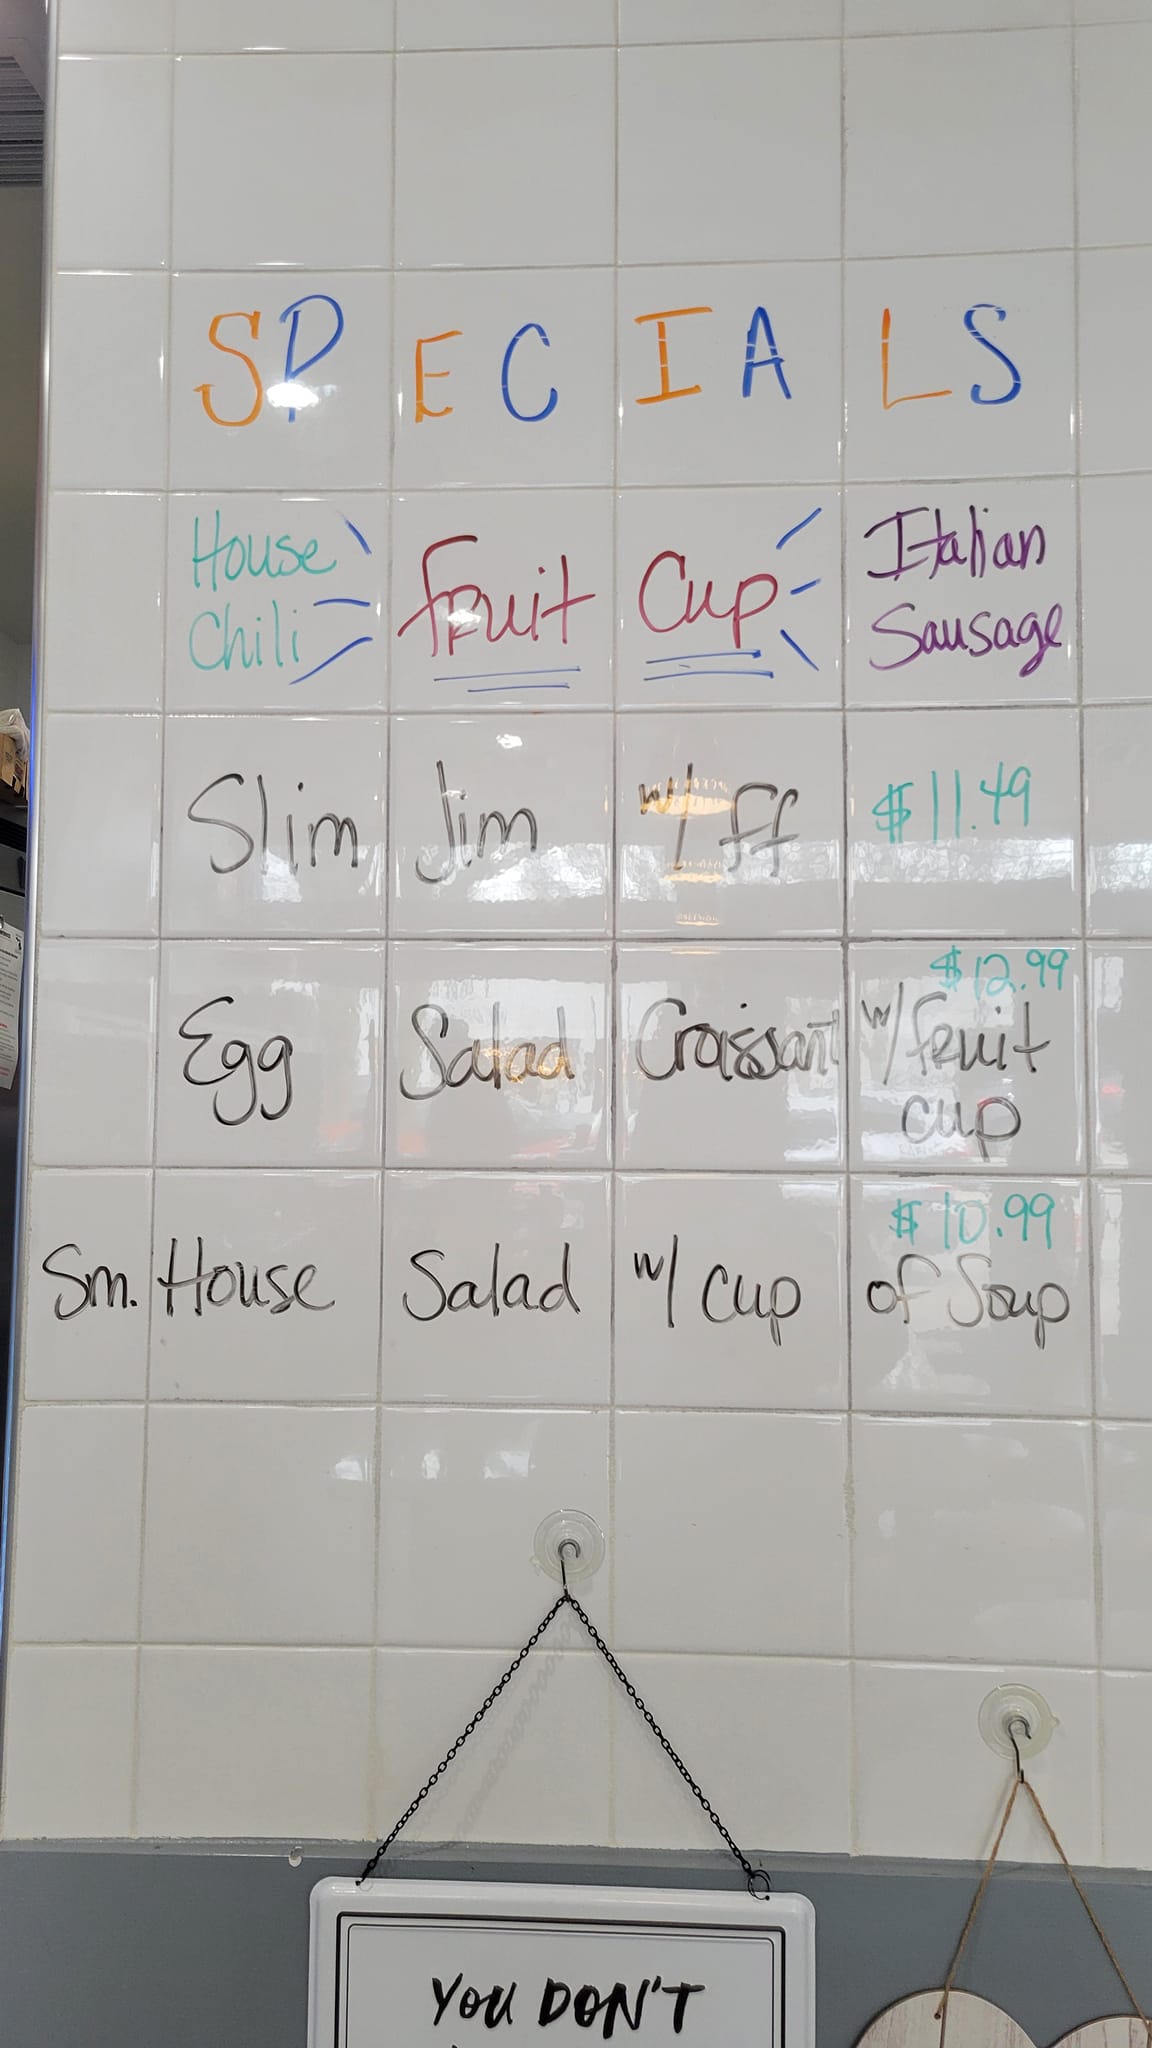 SPECIALS
House Chili
Fruit Cup
Italian Sausage
Slim Jim w/ ff $11.49
$12.99
Egg Salad Croissant w/ fruit cup
$10.99
Sm. House Salad w/ cup of Soup
YOU DON'T